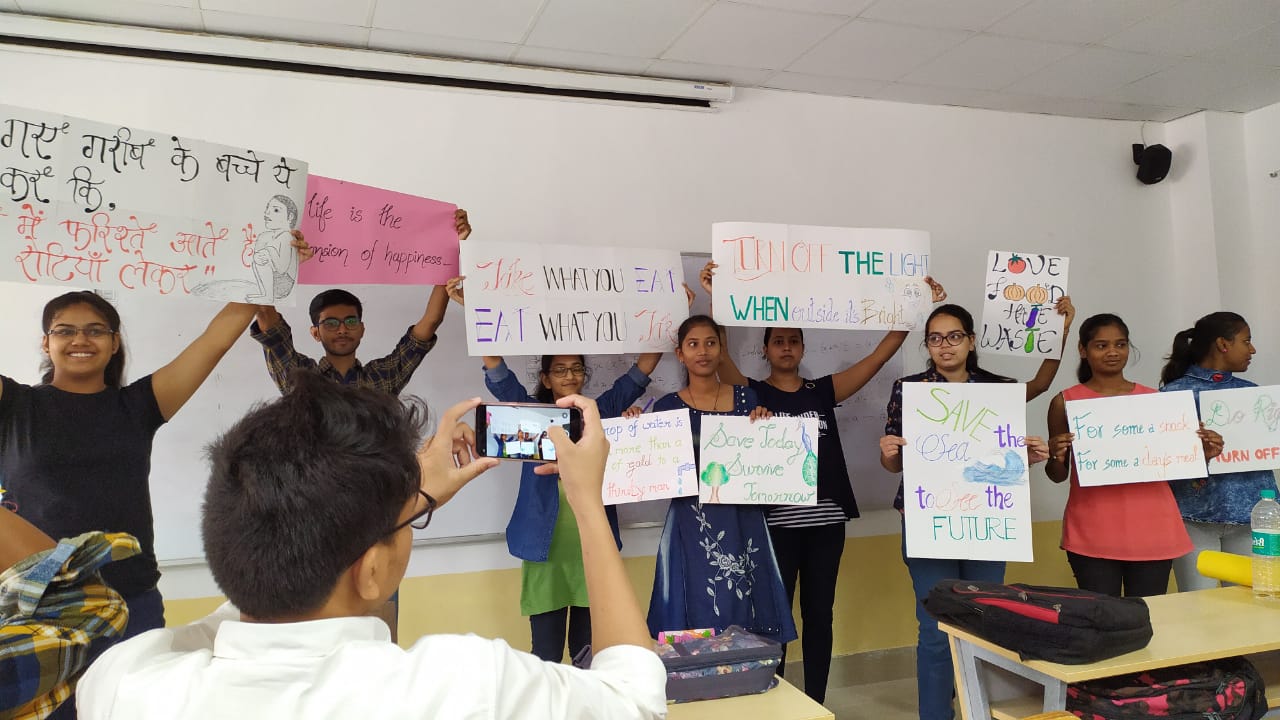 गए गरीब के बच्चे ये
कर कि,
में फरिश्ते आते हैं
रोटियाँ लेकर"
life is the
of happiness
Take WHAT YOU EAT
EAT WHAT YOU Take
TURN OFF THE LIGHT
WHEN outside its Bright
LOVE
FOOD
Hate
WASTE
of water is
more than a
of gold to a
thirsty man
Save Today
Survive
Tomorrow
SAVE the
Sea
to See the
FUTURE
For some a snack
For some a day's meal
Do
TURN OFF